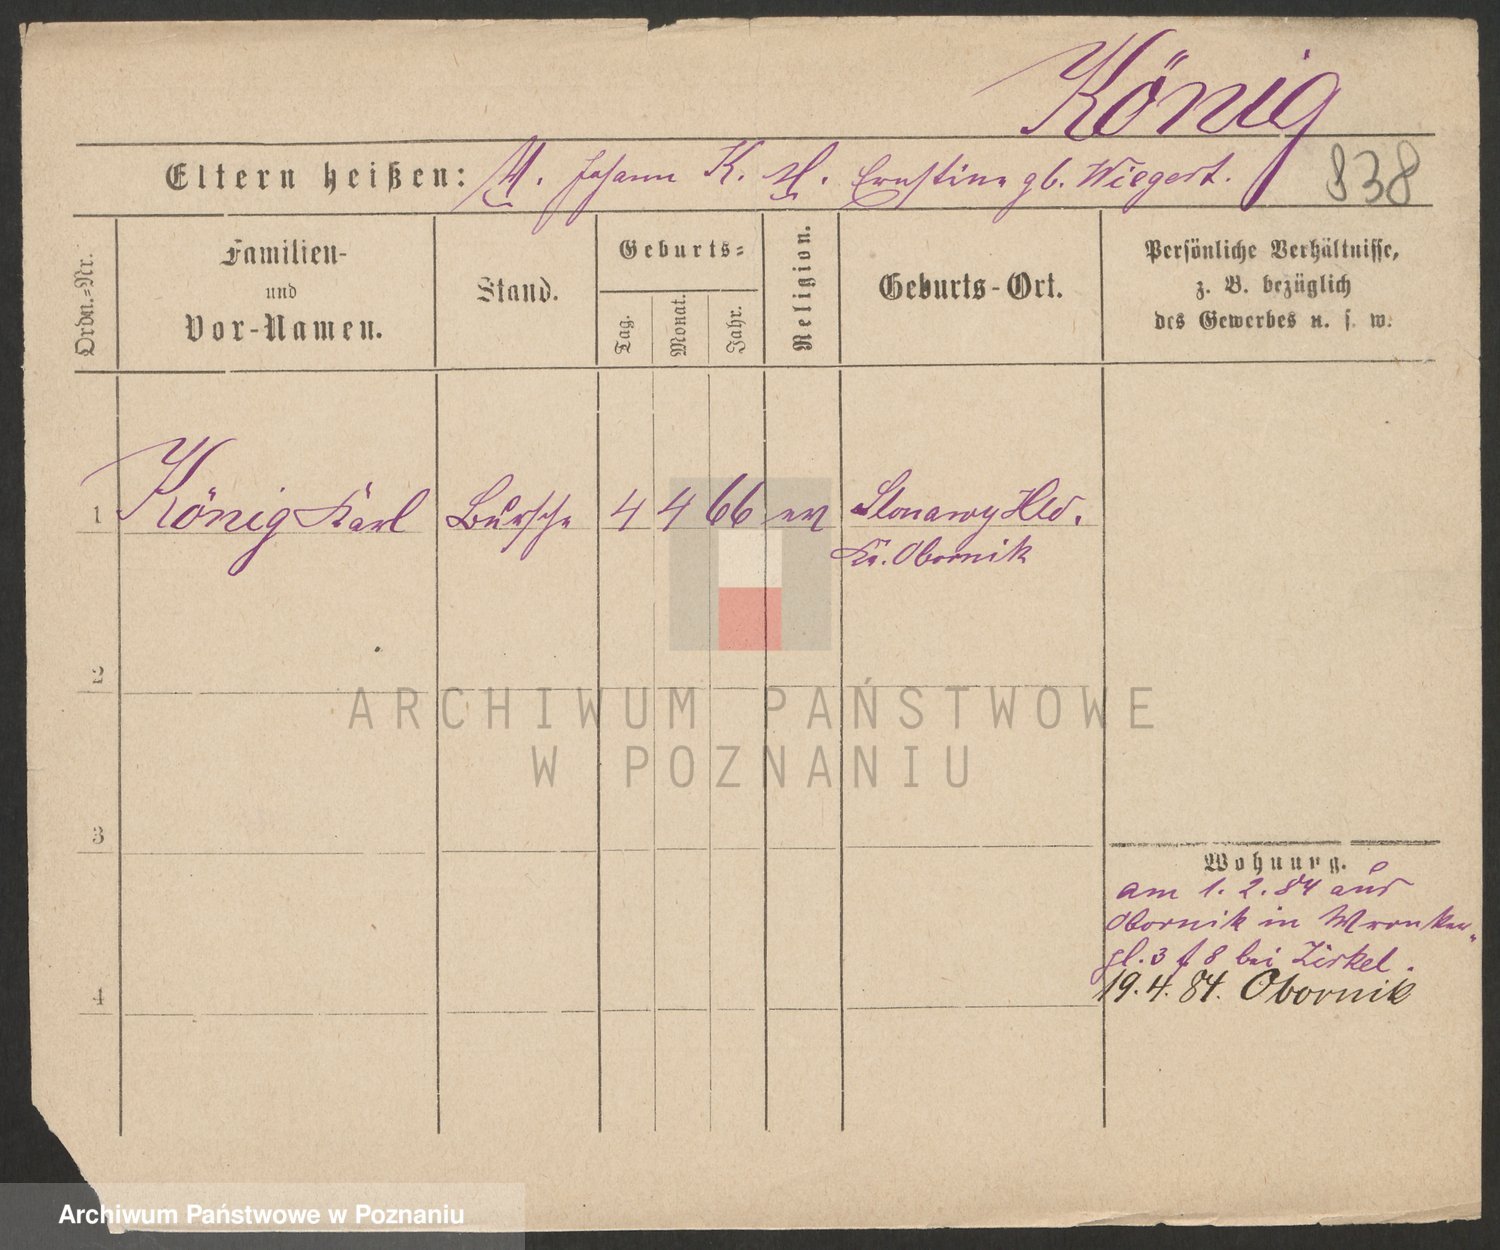 König
Eltern heißen: V. Johann K. M. Ernstine gb. Wiegert.
838
Ordn.-Nr.
Familien-
und
Vor-Namen.
Stand.
Geburts-
Tag.
Monat.
Jahr.
Religion.
Geburts-Ort.
Persönliche Verhältnisse,
z. B. bezüglich
des Gewerbes u. s. w.
1 König Karl Bursche 4 4 66 ev Slonawy Hld.
Kr. Obornik
2
3
4
Wohnung.
am 1. 2. 84 aus
Obornik in Wronker-
pl. 3 f 8 bei Zirkel.
19. 4. 84. Obornik
ARCHIWUM PAŃSTWOWE
W POZNANIU
Archiwum Państwowe w Poznaniu